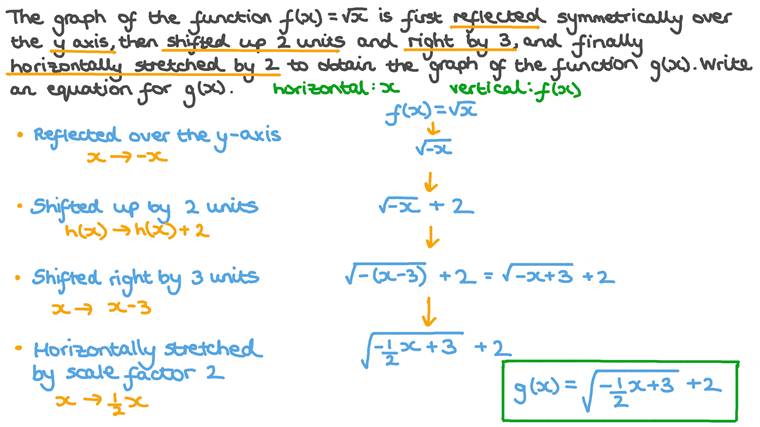 The graph of the function f(x) = √x is first reflected symmetrically over
the y axis, then shifted up 2 units and right by 3, and finally
horizontally stretched by 2 to obtain the graph of the function g(x). Write
an equation for g(x). horizontal: x vertical: f(x)
f(x) = √x
• Reflected over the y-axis
x → -x
↓
√-x
↓
• Shifted up by 2 units
h(x) → h(x) + 2
√-x + 2
↓
• Shifted right by 3 units
x → x-3
√-(x-3) + 2 = √-x+3 + 2
↓
• Horizontally stretched
by scale factor 2
x → 1/2 x
√-1/2 x + 3 + 2
g(x) = √-1/2 x+3 + 2